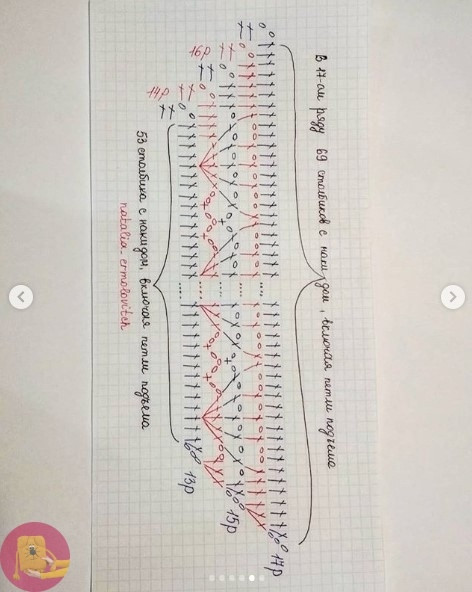 В 17-ом ряду 69 столбиков с накидом, включая петли подъема
17р
16р
15р
14р
13р
53 столбика с накидом, включая петли подъема
natalia_ermolovitch